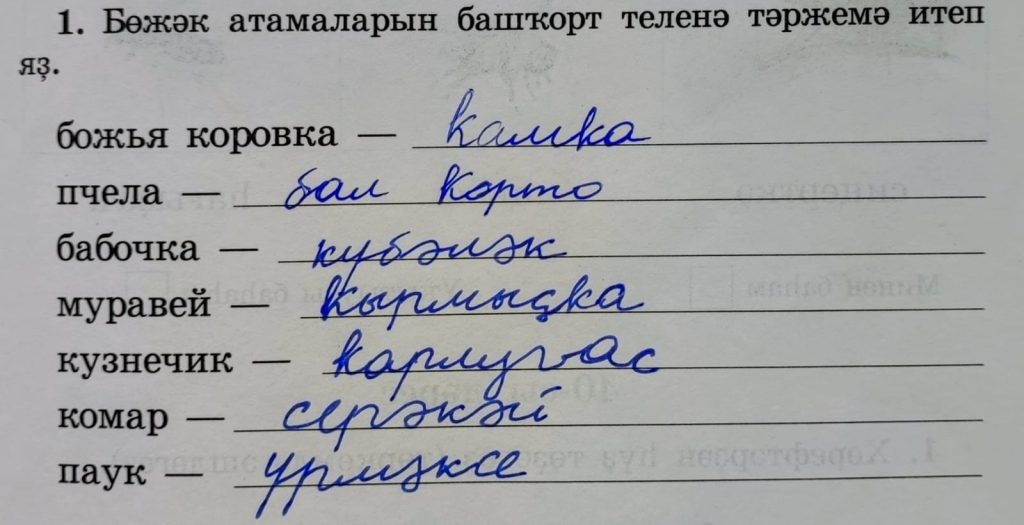 1. Бөжәк атамаларын башҡорт теленә тәржемә итеп
яҙ.
божья коровка — камка
пчела — бал корто
бабочка — күбәләк
муравей — кырмыҫка
кузнечик — карлугас
комар — серәкәй
паук — үрмәксе